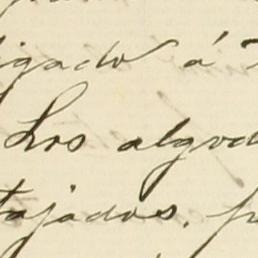 igado á
Los algod
tajados. p